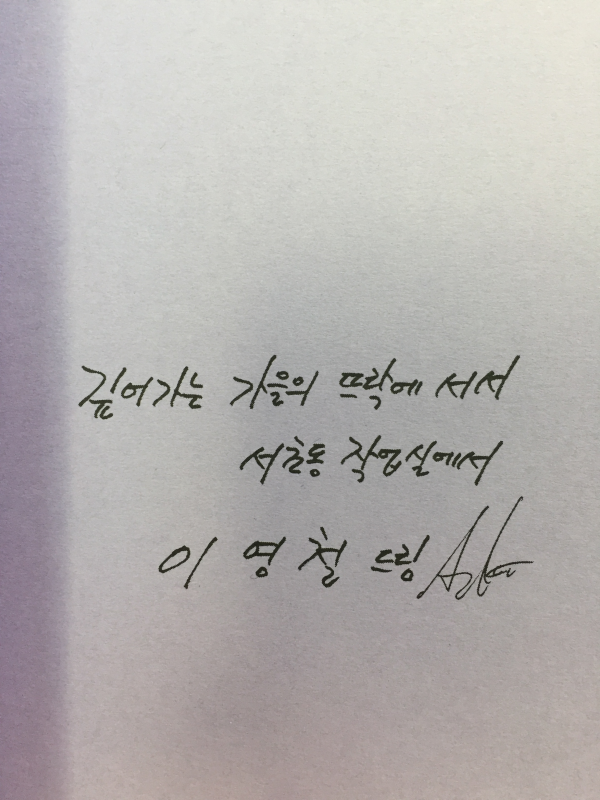 깊어가는 가을의 뜨락에 서서
서초동 작업실에서
이영철 드림